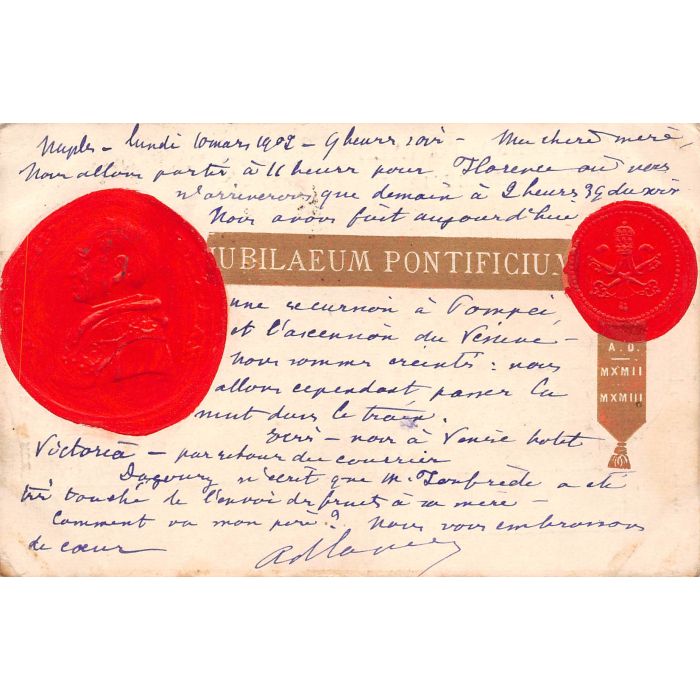 Naples - lundi 10 mars 1902 - 9 heures soir - Ma chère mère,
Nous allons partir à 11 heures pour Florence où nous
n'arriverons que demain à 2 heures 39 du soir
Nous avons fait aujourd'hui
JUBILAEUM PONTIFICIUM
une excursion à Pompéi,
et l'ascension du Vésuve -
nous sommes éreintés : nous
allons cependant passer la
nuit dans le train.
A.D.
MXMII
MXMIII
Écris - nous à Venise hotel
Victoria - par retour du courrier
m'écrit que M. a été
très touché de l'envoi de fruits à sa mère -
Comment va mon père ? Nous vous embrassons
de cœur